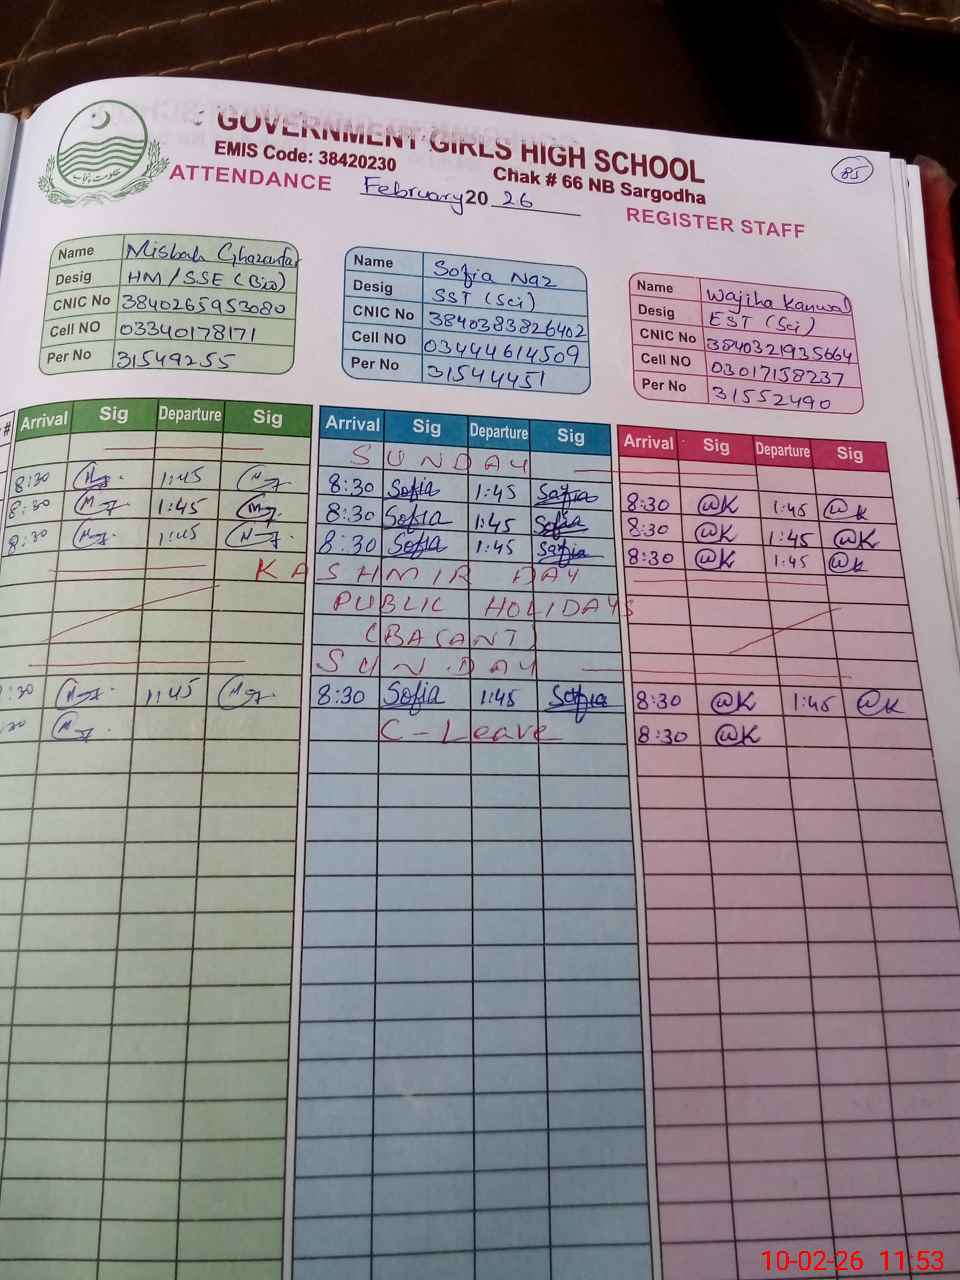 GOVERNMENT GIRLS HIGH SCHOOL
EMIS Code: 38420230
Chak # 66 NB Sargodha
85
ATTENDANCE February 2026
REGISTER STAFF
Name Misbah Ghazanfar
Desig HM/SSE (Bio)
CNIC No 3840265953080
Cell NO 03340178171
Per No 31549255
Name Sofia Naz
Desig SST (Sci)
CNIC No 3840383826402
Cell NO 03444614509
Per No 31544451
Name Wajiha Kanwal
Desig EST (Sci)
CNIC No 3840321935664
Cell NO 03017158237
Per No 31552490
# Arrival Sig Departure Sig Arrival Sig Departure Sig Arrival Sig Departure Sig
SUNDAY
8:30 1:45 8:30 Sofia 1:45 Sofia 8:30 @K 1:45 @K
8:30 1:45 8:30 Sofia 1:45 Sofia 8:30 @K 1:45 @K
8:30 1:45 8:30 Sofia 1:45 Sofia 8:30 @K 1:45 @K
KASHMIR DAY
PUBLIC HOLIDAYS
(BASANT)
SUNDAY
:30 1:45 8:30 Sofia 1:45 Sofia 8:30 @K 1:45 @K
:30 C-Leave 8:30 @K
10-02-26 11:53